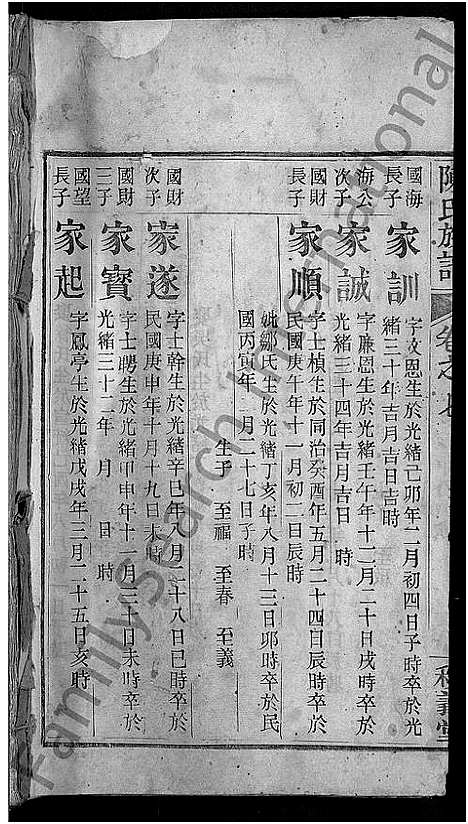 陳氏族譜
卷之七
一
和義堂
國海
長子
家訓
字文恩生於光緒己卯年二月初四日子時卒於光
緒三十年吉月吉日吉時
海公
次子
家誠
字廉恩生於光緒壬午年十二月二十日戌時卒於
光緒三十四年吉月吉日 時
國財
長子
家順
字士楨生於同治癸酉年五月二十四日辰時卒於
民國庚午年十一月初二日辰時
妣鄒氏生於光緒丁亥年八月十三日卯時卒於民
國丙寅年 月二十七日子時
生子 至福 至春 至義
國財
次子
家遂
字士幹生於光緒辛巳年八月二十八日巳時卒於
民國庚申年十月十九日未時
國財
三子
家寶
字士聘生於光緒甲申年十一月三十日未時卒於
光緒三十二年 月 日 時
國望
長子
家起
字鳳亭生於光緒戊戌年三月二十五日亥時
Familysearch International